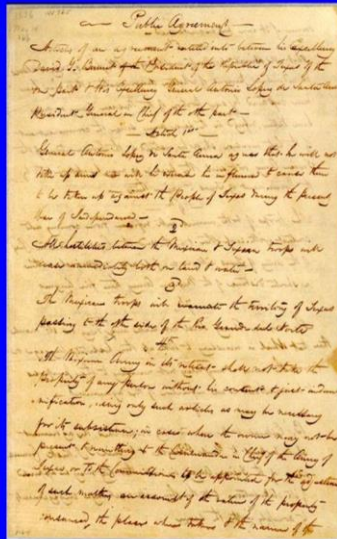 Public Agreement
Articles of an agreement entered into between his Excellency
David G. Burnet President of the Republic of Texas of the
one part & His Excellency General Antonio Lopez de Santa Anna
President General in Chief of the oth part
Article 1st
General Antonio Lopez de Santa Anna agrees that he will not
take up arms nor will he to be influenced to cause them
to be taken up against the People of Texas during the present
War of Independence
All hostilities between the Mexican & Texian troops will
cease immediately both on land & water
3
The Mexican troops will evacuate the territory of Texas
passing to the oth side of the Rio Grande del Norte
4th
The Mexican Army in its retreat shall not take the
property of any person without his consent & just indem-
nification, using only such articles as may be necessary
for its subsistence, in cases where the owner may not be
present & remitting to the Commander in Chief of the Army of
Texas or to the Commissioner to be appointed for the adjustment
of such matters an account of the value of the property
consumed, the place where taken & the name of the